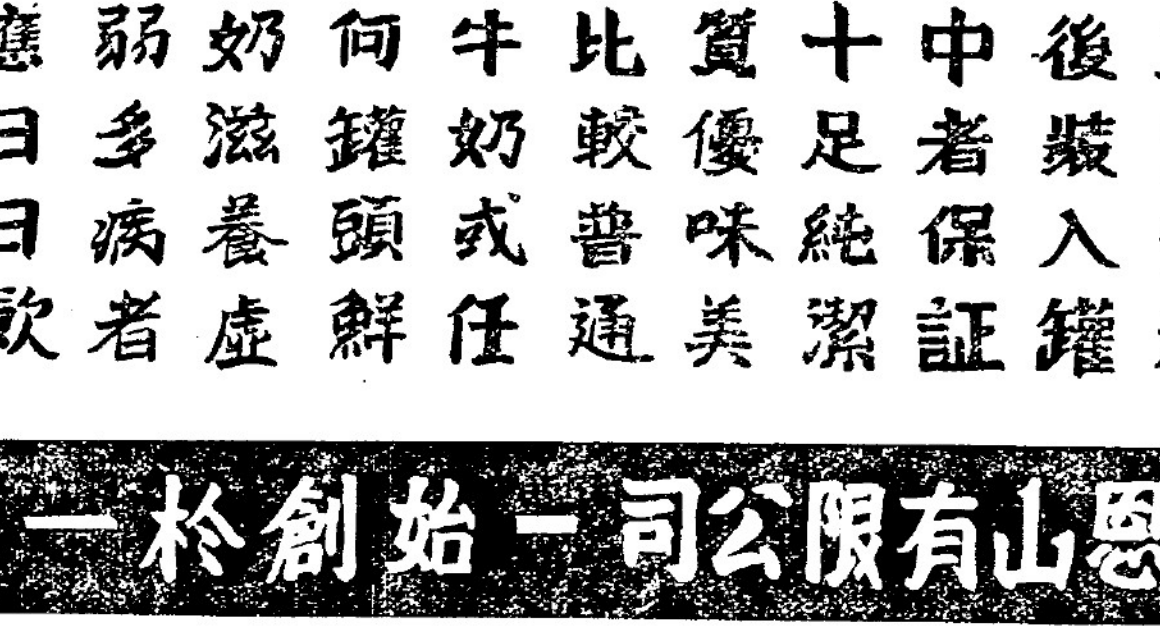 後裝入罐
中者保証
十足純潔
質優味美
比較普通
牛奶或任
何罐頭鮮
奶滋養虛
弱多病者
應日日飲
恩山有限公司—始創於一